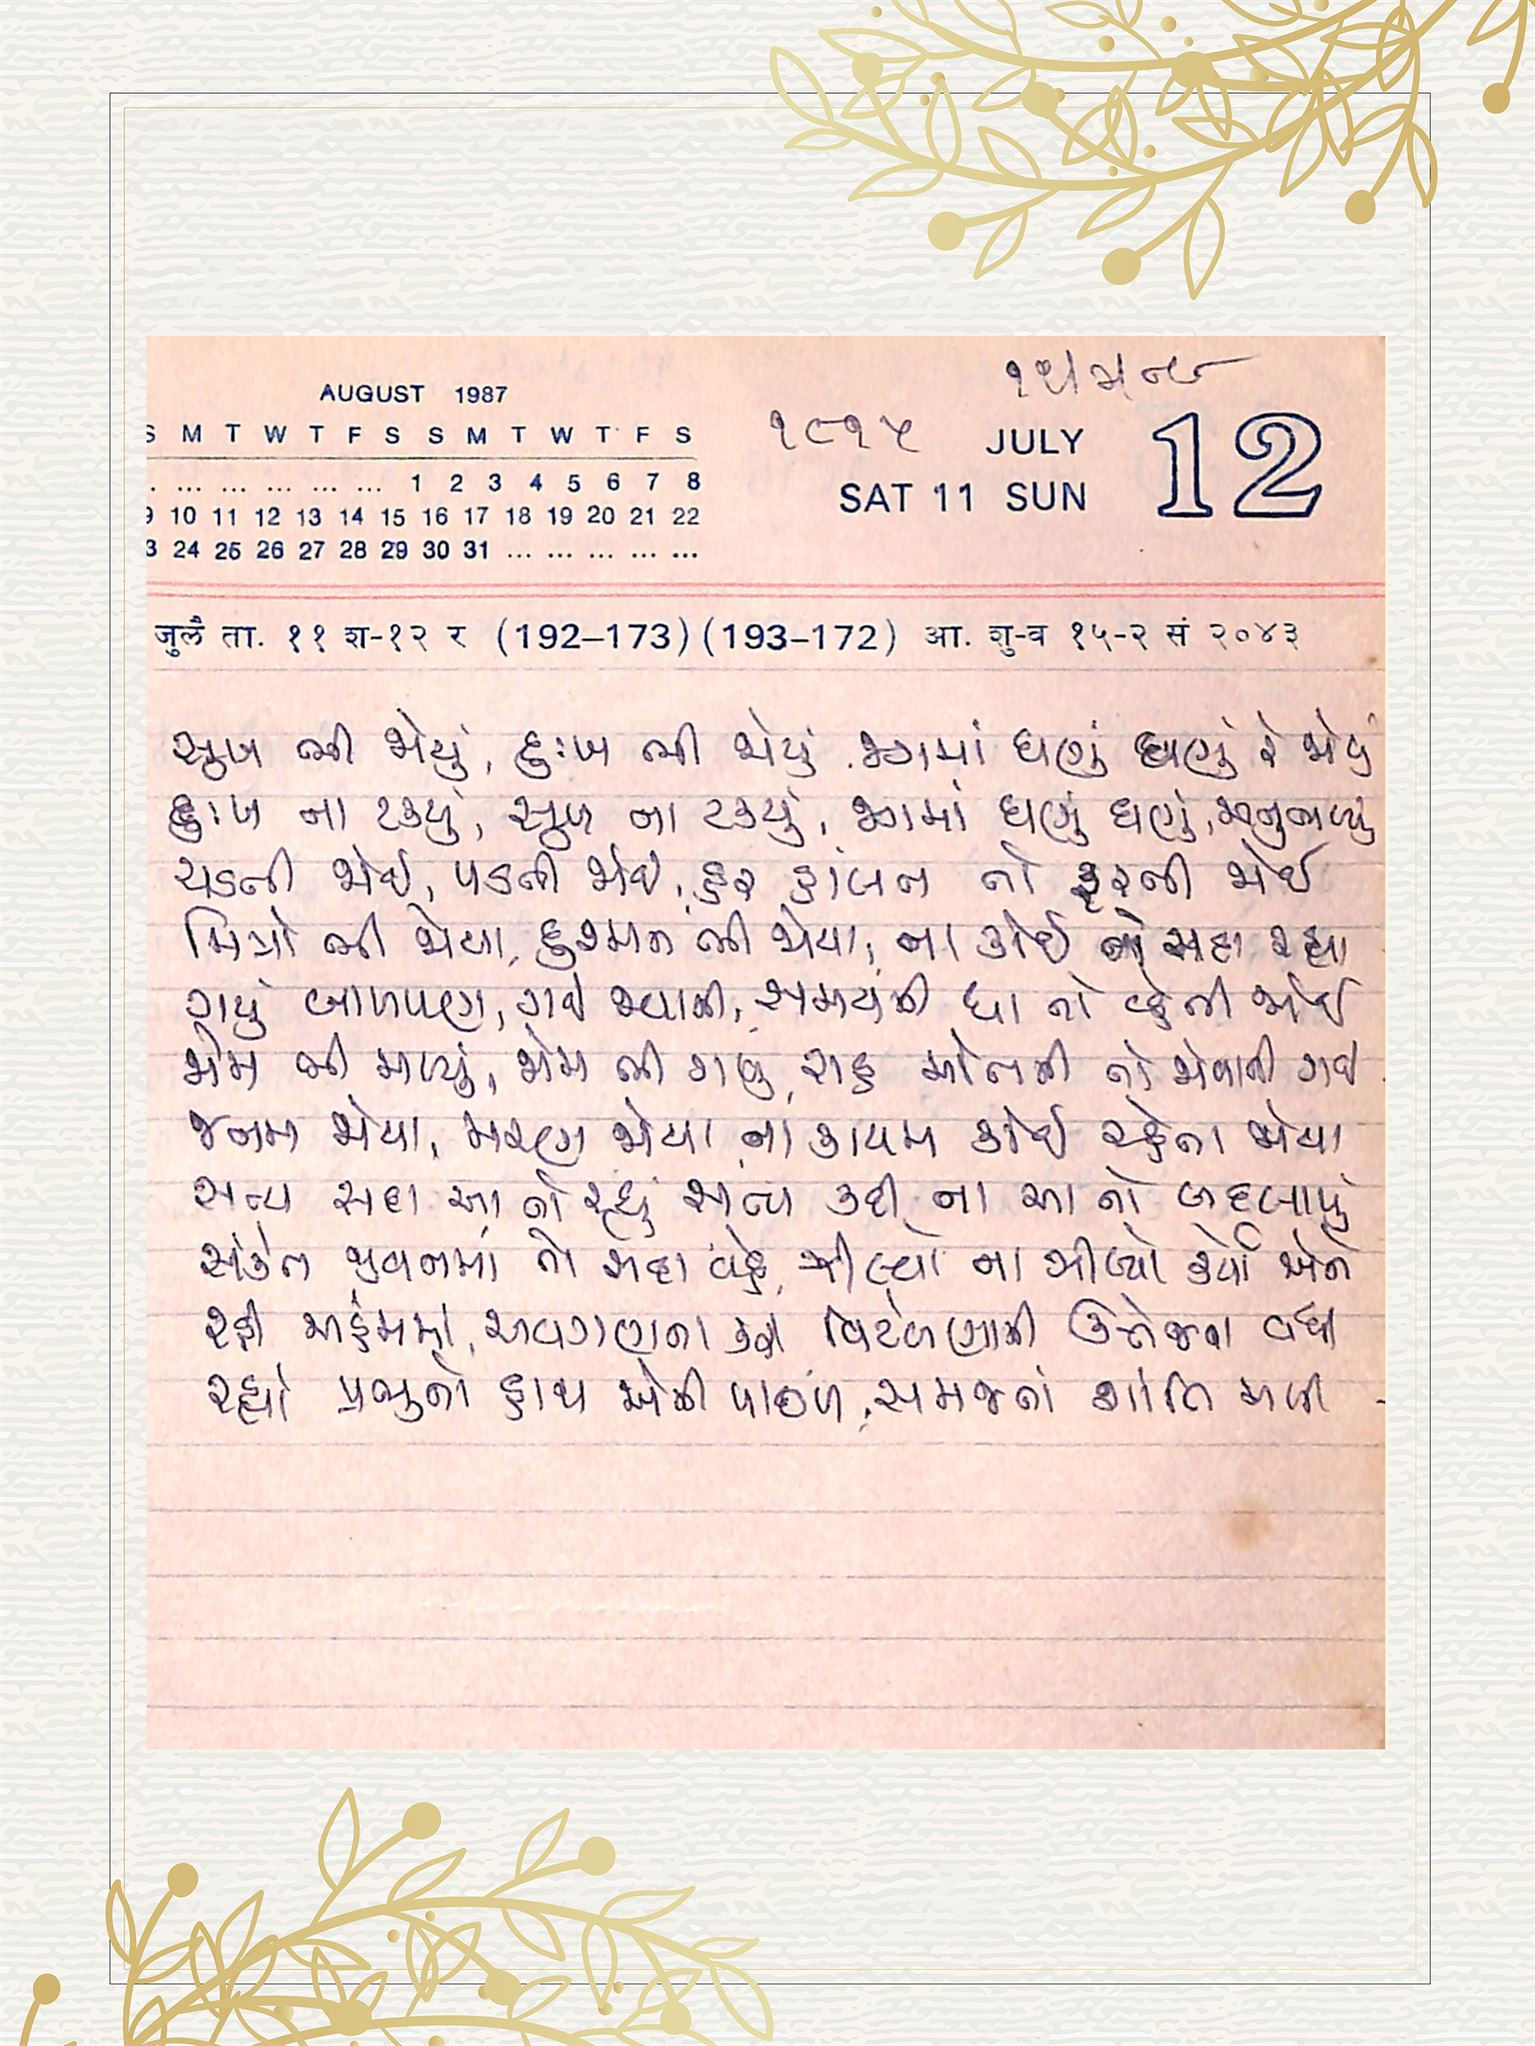 AUGUST 1987
S M T W T F S S M T W T F S
. ... ... ... ... ... 1 2 3 4 5 6 7 8
9 10 11 12 13 14 15 16 17 18 19 20 21 22
3 24 25 26 27 28 29 30 31 ... ... ... ... ...
૧૮૧૫ JULY
SAT 11 SUN 12
जुलै ता. ११ श-१२ र (192–173) (193–172) आ. शु-व १५-२ सं २०४३
સુખ ભી જોયું, દુઃખ ભી જોયું, જગમાં ઘણું ઘણું રે જોયું
દુઃખ ના ટક્યું, સુખ ના ટક્યું, જગમાં ઘણું ઘણું, અનુભવ્યું
ચડતી જોઈ, પડતી જોઈ, હર હાલત તો ફરતી જોઈ
મિત્રો ભી જોયા, દુશ્મન ભી જોયા, ના કોઈ તો સદા રહ્યા
ગયું બાળપણ, ગઈ જવાની, સમયની ધારા તો વ્હેતી જોઈ
પ્રેમ ભી મળ્યું, પ્રેમ ભી ગયું, રાહ મોતની તો જોવાતી ગઈ
જનમ જોયા, મરણ જોયા, ના કાયમ કોઈ રહેતા જોયા
સત્ય સદા આ તો રહ્યું, સત્ય કદી ના આ તો બદલાયું
સંકેત જીવનમાં તો સદા વહે, ઝીલ્યો ના ઝીલ્યો કર્યો એને
રહી અહંમમાં, અવગણના કરી, વિટંબણાની ઉત્તેજના વધી
રહ્યો પ્રભુનો હાથ એની પાછળ, સમજતાં શાંતિ મળી